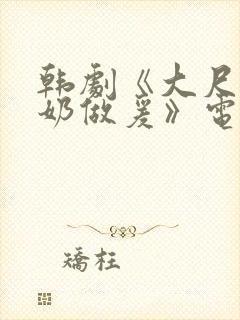 韩劇《大尺
奶做爰》電
矯枉